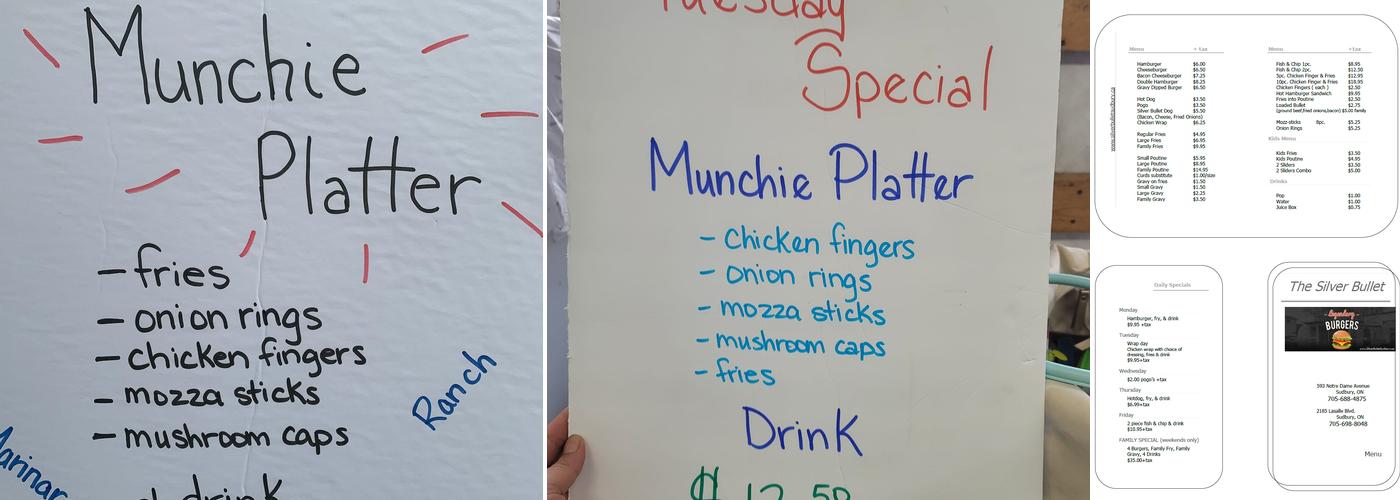 Munchie
Platter
- fries
- onion rings
- chicken fingers
- mozza sticks
- mushroom caps
Ranch
drink
Tuesday
Special
Munchie Platter
- Chicken fingers
- onion rings
- mozza sticks
- mushroom caps
- fries
Drink
$ 12.50
Menu + tax
Hamburger $6.00
Cheeseburger $6.50
Bacon Cheeseburger $7.25
Double Hamburger $8.25
Gravy Dipped Burger $6.50
Hot Dog $3.50
Pogo $3.50
Silver Bullet Dog $5.50
(Bacon, Cheese, Fried Onions)
Chicken Wrap $6.25
Regular Fries $4.95
Large Fries $6.95
Family Fries $9.95
Small Poutine $5.95
Large Poutine $8.95
Family Poutine $14.95
Curds substitute $1.00/size
Gravy on fries $1.50
Small Gravy $1.50
Large Gravy $2.25
Family Gravy $3.50
www.silverbulletsudbury.ca
Menu +tax
Fish & Chip 1pc. $8.95
Fish & Chip 2pc. $12.50
5pc. Chicken Finger & Fries $12.95
10pc. Chicken Finger & Fries $18.95
Chicken Fingers ( each ) $2.50
Hot Hamburger Sandwich $9.95
Fries into Poutine $2.50
Loaded Bullet $2.75
(ground beef,fried onions,bacon) $5.00 family
Mozz-sticks 8pc. $5.25
Onion Rings $5.25
Kids Menu
Kids Fries $3.50
Kids Poutine $4.95
2 Sliders $3.50
2 Sliders Combo $5.00
Drinks
Pop $1.00
Water $1.00
Juice Box $0.75
Daily Specials
Monday
Hamburger, fry, & drink
$9.95 +tax
Tuesday
Wrap day
Chicken wrap with choice of
dressing, fries & drink
$9.95+tax
Wednesday
$2.00 pogo's +tax
Thursday
Hotdog, fry, & drink
$6.99+tax
Friday
2 piece fish & chip & drink
$10.95+tax
FAMILY SPECIAL (weekends only)
4 Burgers, Family Fry, Family
Gravy, 4 Drinks
$35.00+tax
The Silver Bullet
Legendary
BURGERS
593 Notre Dame Avenue
Sudbury, ON
705-688-4875
2185 Lasalle Blvd.
Sudbury, ON
705-698-8048
Menu